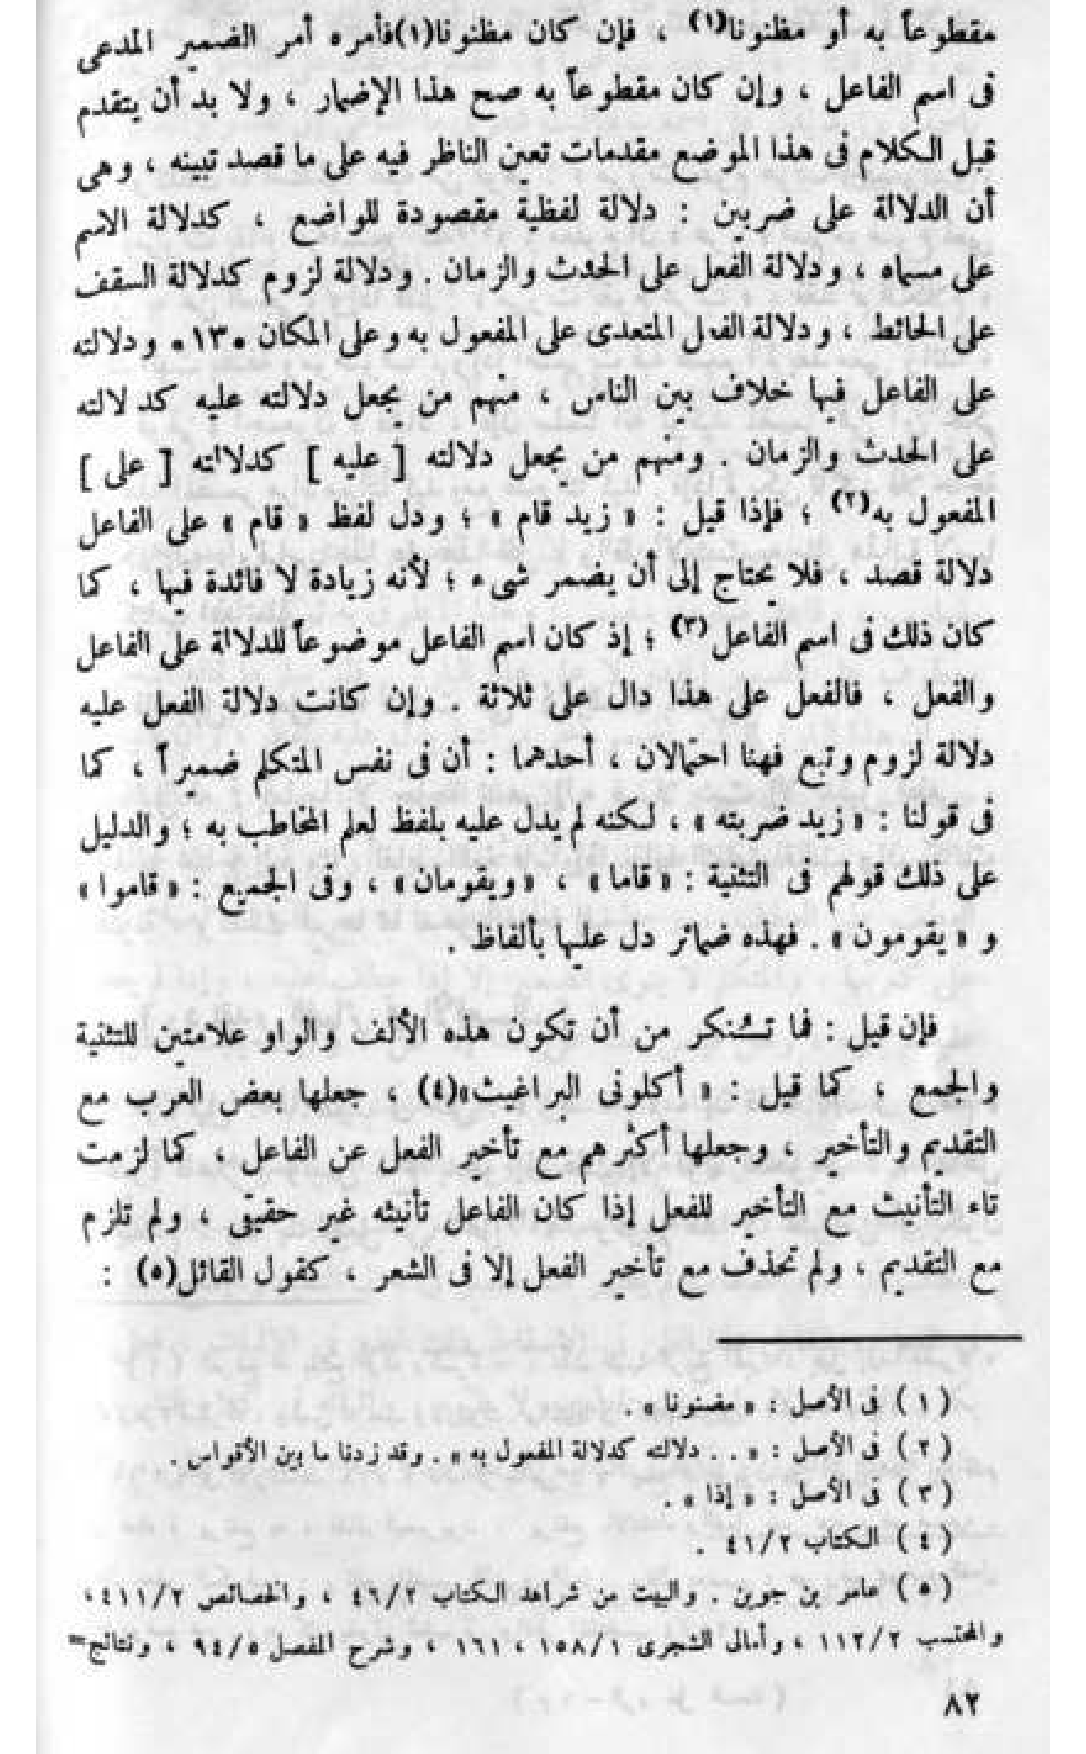 مقطوعاً به أو مظنونا(١) ، فإن كان مظنونا(١)فأمره أمر الضمير المدعى
فى اسم الفاعل ، وإن كان مقطوعاً به صح هذا الإضمار ، ولا بد أن يتقدم
قبل الكلام فى هذا الموضع مقدمات تعين الناظر فيه على ما قصد تبينه ، وهى
أن الدلالة على ضربين : دلالة لفظية مقصودة للواضع ، كدلالة الاسم
على مسماه ، ودلالة الفعل على الحدث والزمان . ودلالة لزوم كدلالة السقف
على الحائط ، ودلالة الفعل المتعدى على المفعول به وعلى المكان «١٣» ودلالته
على الفاعل فيها خلاف بين الناس ، منهم من يجعل دلالته عليه كدلالته
على الحدث والزمان . ومنهم من يجعل دلالته [ عليه ] كدلالته [ على ]
المفعول به(٢) ؛ فإذا قيل : « زيد قام » ؛ ودل لفظ « قام » على الفاعل
دلالة قصد ، فلا يحتاج إلى أن يضمر شىء ؛ لأنه زيادة لا فائدة فيها ، كما
كان ذلك فى اسم الفاعل(٣) ؛ إذ كان اسم الفاعل موضوعاً للدلالة على الفاعل
والفعل ، فالفعل على هذا دال على ثلاثة . وإن كانت دلالة الفعل عليه
دلالة لزوم وتبع فهنا احتمالان ، أحدهما : أن فى نفس المتكلم ضميراً ، كما
فى قولنا : « زيد ضربته » ، لكنه لم يدل عليه بلفظ لعلم المخاطب به ؛ والدليل
على ذلك قولهم فى التثنية : « قاما » ، « ويقومان » ، وفى الجميع : « قاموا »
و « يقومون » . فهذه ضمائر دل عليها بألفاظ .
فإن قيل : فما تستنكر من أن تكون هذه الألف والواو علامتين للتثنية
والجمع ، كما قيل : « أكلونى البراغيث»(٤) ، جعلها بعض العرب مع
التقديم والتأخير ، وجعلها أكثرهم مع تأخير الفعل عن الفاعل ، كما لزمت
تاء التأنيث مع التأخير للفعل إذا كان الفاعل تأنيثه غير حقيقى ، ولم تلزم
مع التقديم ، ولم تحذف مع تأخير الفعل إلا فى الشعر ، كقول القائل(٥) :
( ١ ) فى الأصل : « مضنونا » .
( ٢ ) فى الأصل : « . . دلالته كدلالة المفعول به » . وقد زدنا ما بين الأقواس .
( ٣ ) فى الأصل : « إذا » .
( ٤ ) الكتاب ٤١/٢ .
( ٥ ) عامر بن جوين . والبيت من شواهد الكتاب ٤٦/٢ ، والخصائص ٤١١/٢ ،
والمحتسب ١١٢/٢ ، وأمالى الشجرى ١٥٨/١ ، ١٦١ ، وشرح المفصل ٩٤/٥ ، ونتائج=
٨٢